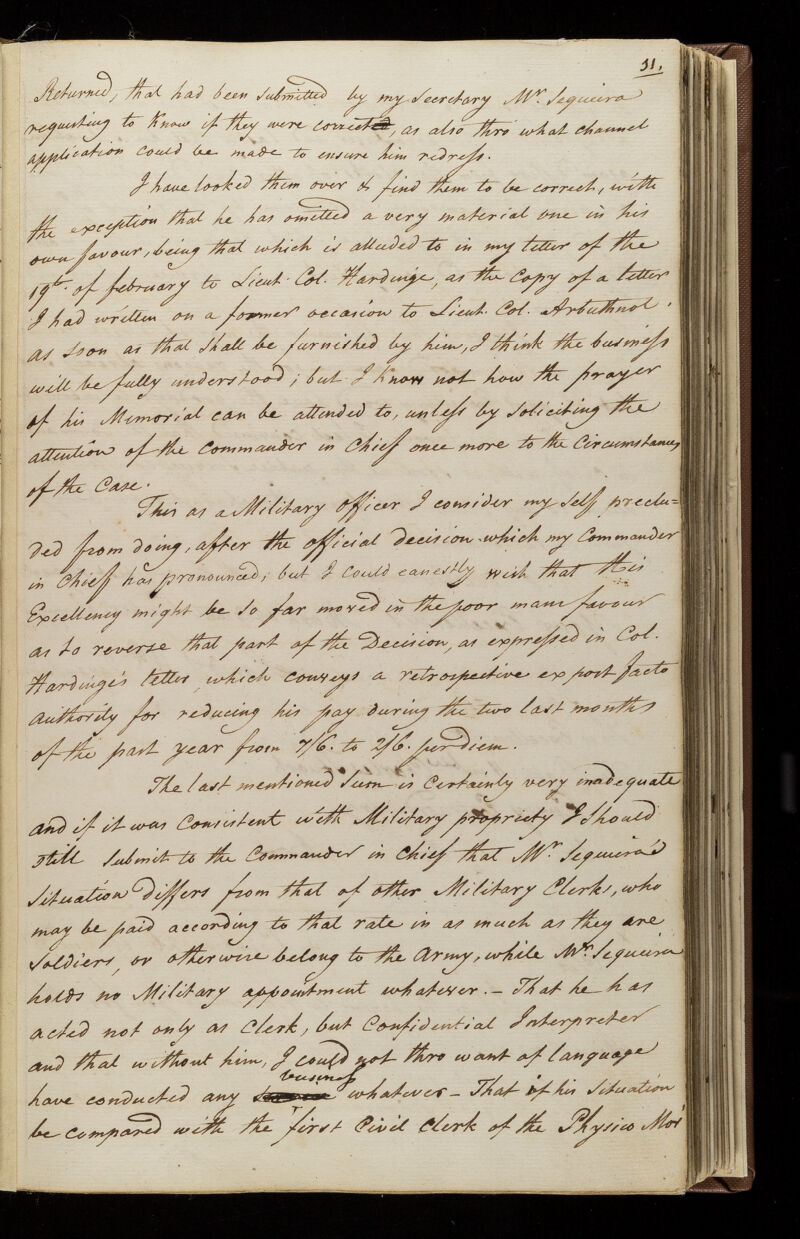 11.
Returned, that had been submitted by my Secretary Mr. Sequeira
requesting to Know if they were correct, as also thro what channel
application could be made to ensure him redress.
I have looked them over & find them to be correct, with
the exception that he has omitted a very material one in his
own favour, being that which is alluded to in my letter of the
19th. of february to Lieut. Col. Hardinge, as the Copy of a letter
I had written on a former occasion to Lieut. Col. Arbuthnot.
as soon as that shall be furnished by him, I think the business
will be fully understood; but I Know not how the prayer
of his Memorial can be attended to, unless by soliciting the
attention of the Commander in Chief once more to the Circumstances
of the Case.
This as a Military officer I consider my self preclu=
ded from doing, after the official decision which my Commander
in Chief has pronounced; but I could eanestly wish that His
Excellency might be so far moved in the poor mans favour
as to reverse that part of the Decision, as expressed in Col.
Hardinge's letter, which conveys a retrospective ex post facto
authority for reducing his pay during the two last months
of the past year from 7/6. to 2/6. per diem.
The last mentioned Sum is Certainly very inadequate
and if it was Consistent with Military propriety I should
still submit to the Commander in Chief that Mr. Sequeira's
situation differs from that of other Military Clerks, who
may be paid according to that rate in as much as they are
Soldiers, or otherwise belong to the Army, while Mr. Sequeira
holds no Military appointment whatever. - That he has
acted not only as Clerk, but Confidential Interpreter
and that without him, I could not thro want of language
have conducted any business whatever - That if his situation
be compared with the first Civil Clerk of the Physico Mor